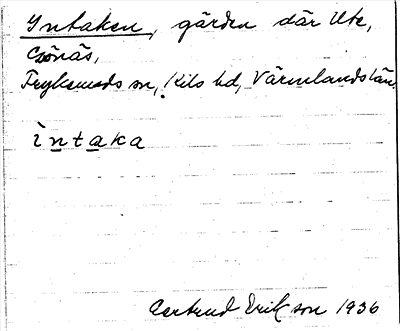 Intaken, gärden där Ute,
Csönäs,
Frykeruds sn, Kils hd, Värmlands län.
ìntaka
Gertrud Eriksson 1936